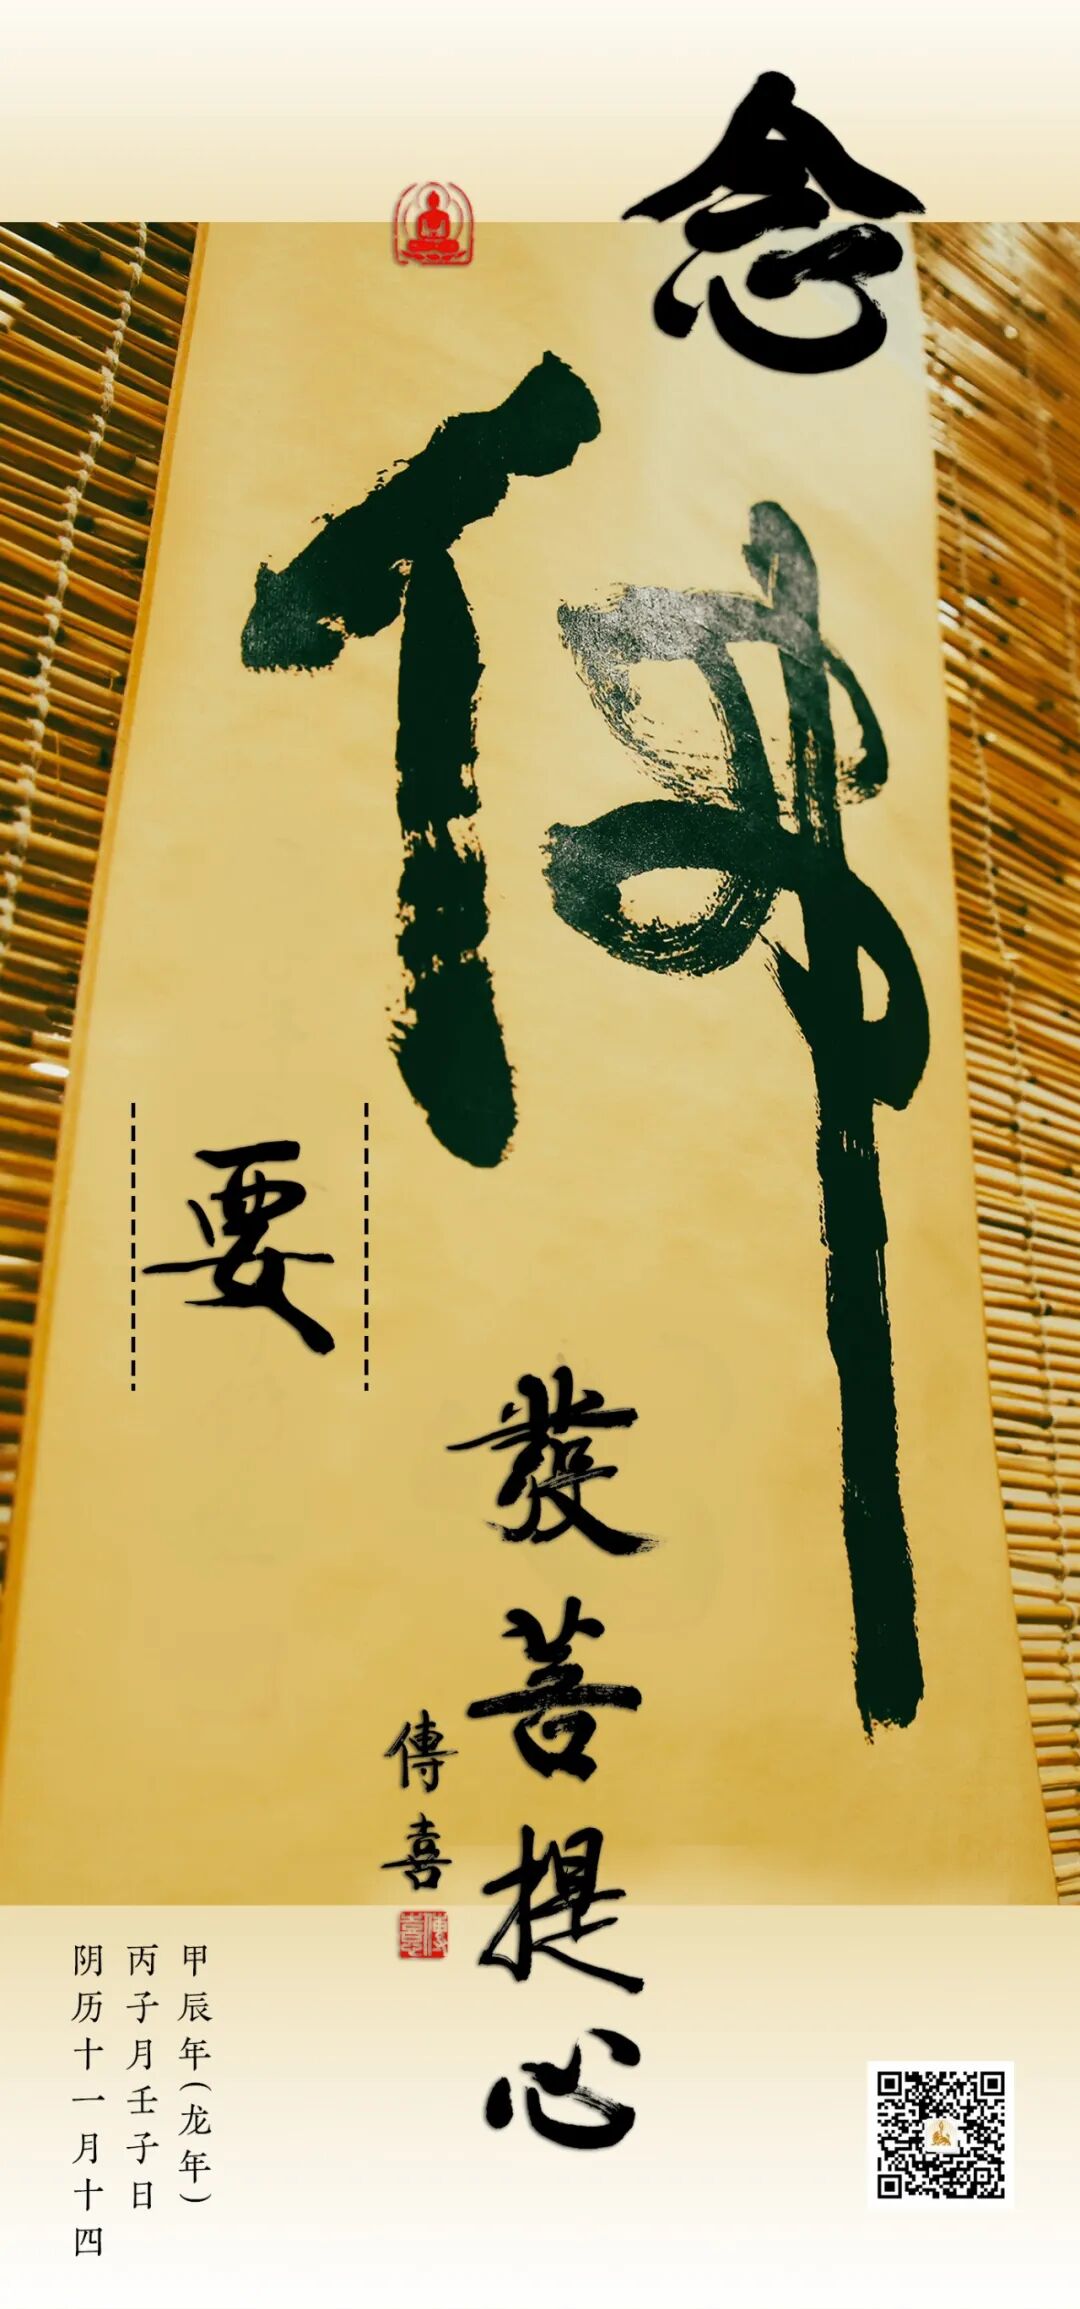 念佛
要
發菩提心
傳喜
傳喜
甲辰年(龙年)
丙子月壬子日
阴历十一月十四